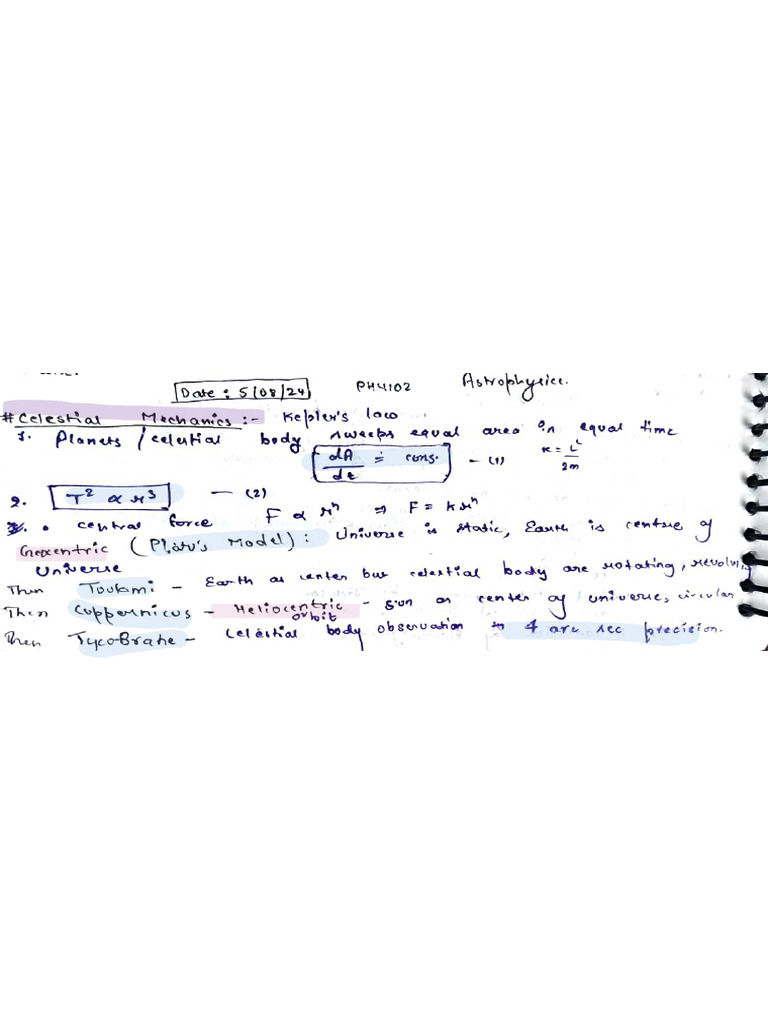 Date: 5/08/24 PH4102 Astrophysics.
# Celestial Mechanics :- Kepler's law
1. Planets / celestial body sweeps equal area in equal time
dA/dt = cons. — (1) K = L²/2m
2. T² ∝ r³ — (2)
3. • central force F ∝ rⁿ ⇒ F = krⁿ
Geocentric (Plato's Model): Universe is static, Earth is centre of
Universe
Then Toulami - Earth as center but celestial body are rotating, revolving
Then Coppernicus - Heliocentric - sun as center of universe, circular
orbit
Then Tyco Brahe - Celestial body observation 4 arc sec precision.